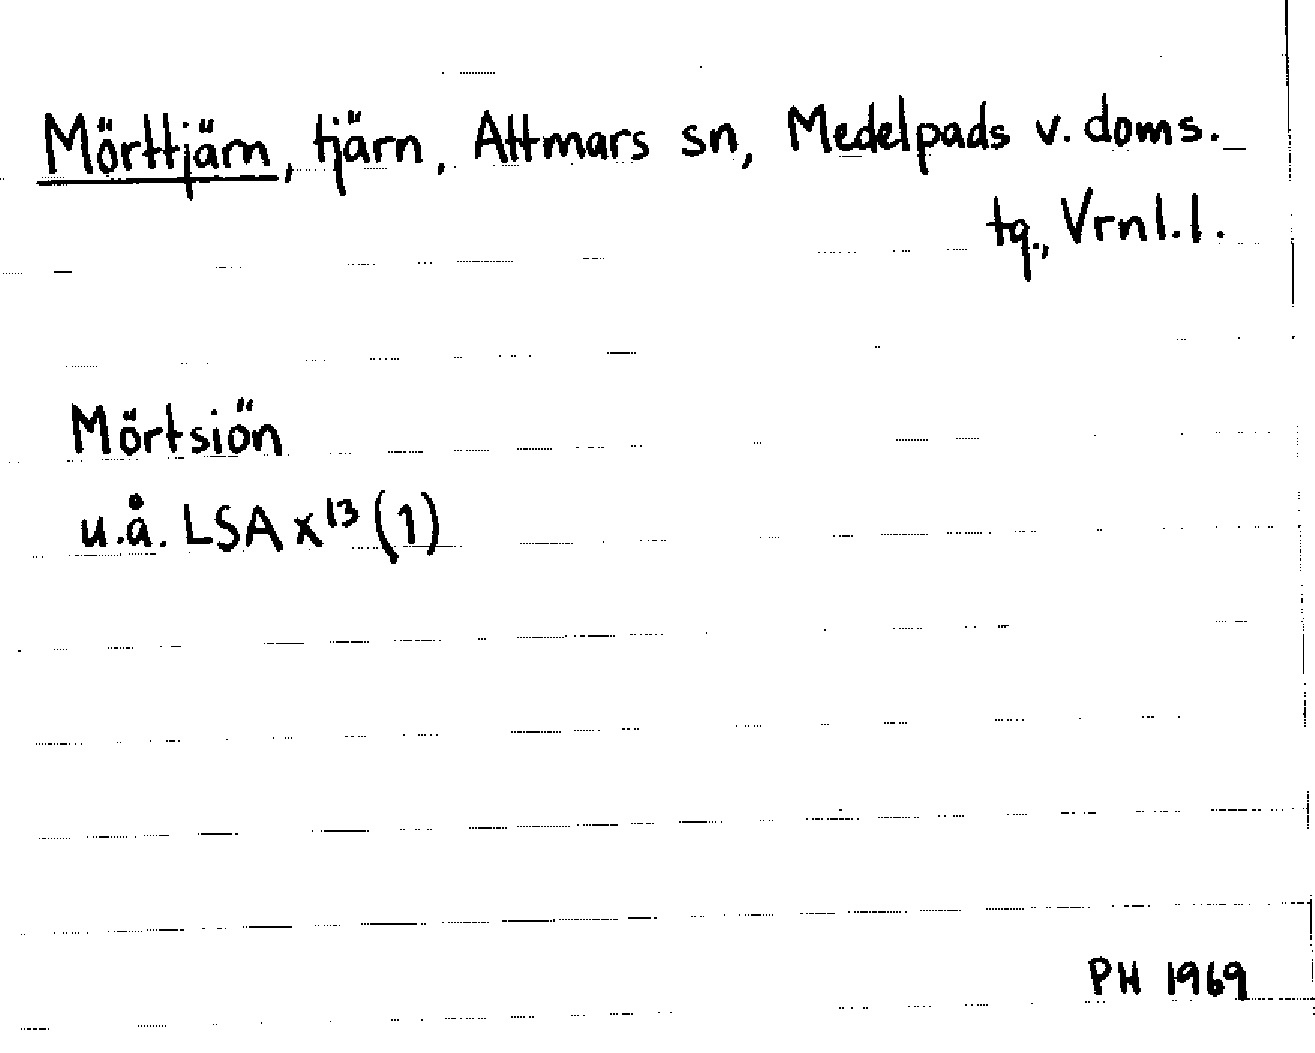 Mörttjärn, tjärn, Attmars sn, Medelpads v. doms.
tq., Vrnl.l.
Mörtsiön
u.å. LSA x¹³ (1)
PH 1969